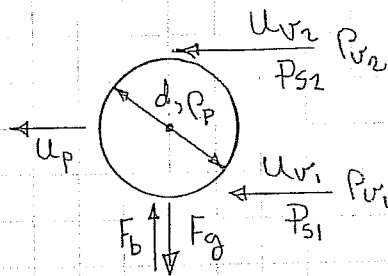 u_v2 ρ_v2
P_S2
d, ρ_p
u_p
u_v1 ρ_v1
P_S1
F_b F_g